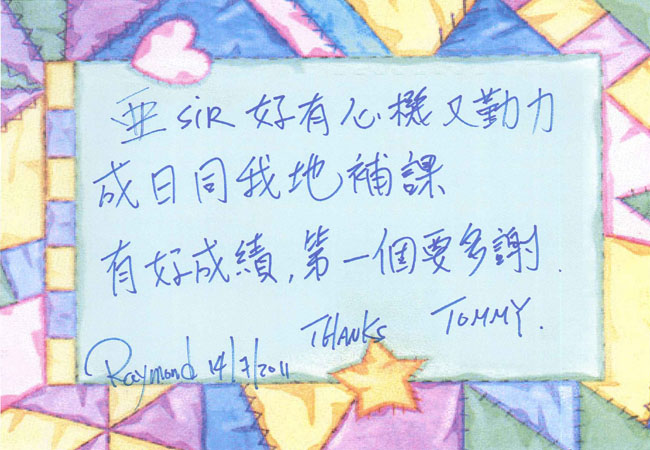 亜 SIR 好有心機又勤力
成日同我地補課
有好成績，第一個要多謝.
THANKS TOMMY.
Raymond 14/7/2011